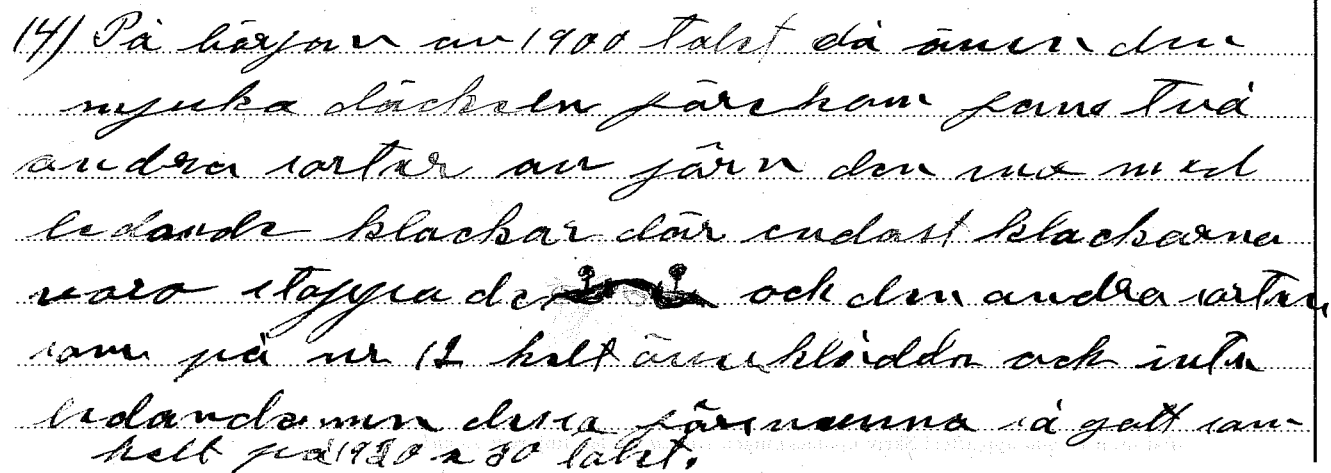 14) På början av 1900 talet då även den
mjuka däckeln förekom fans två
andra sorter av järn den ena med
ledande klackar där endast klackarna
voro stoppade och den andra sorten
som på nr 12 helt överklädda och inte
ledande men dessa försvunna så gott som
helt på 1920 a 30 talet.